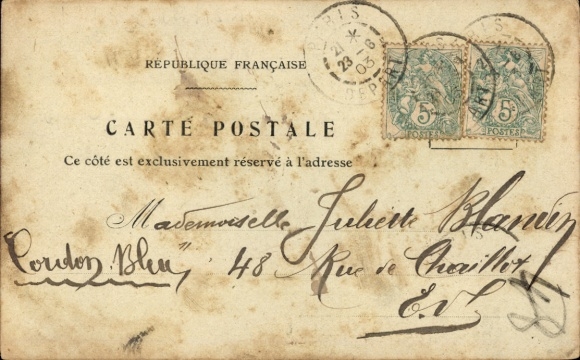 PARIS
21 * 23 -6 03
DEPART
RÉPUBLIQUE FRANÇAISE
5c 5c
POSTES POSTES
CARTE POSTALE
Ce côté est exclusivement réservé à l'adresse
Mademoiselle Juliette Blandin
"Cordon Bleu" 48 Rue de Chaillot
E.V.